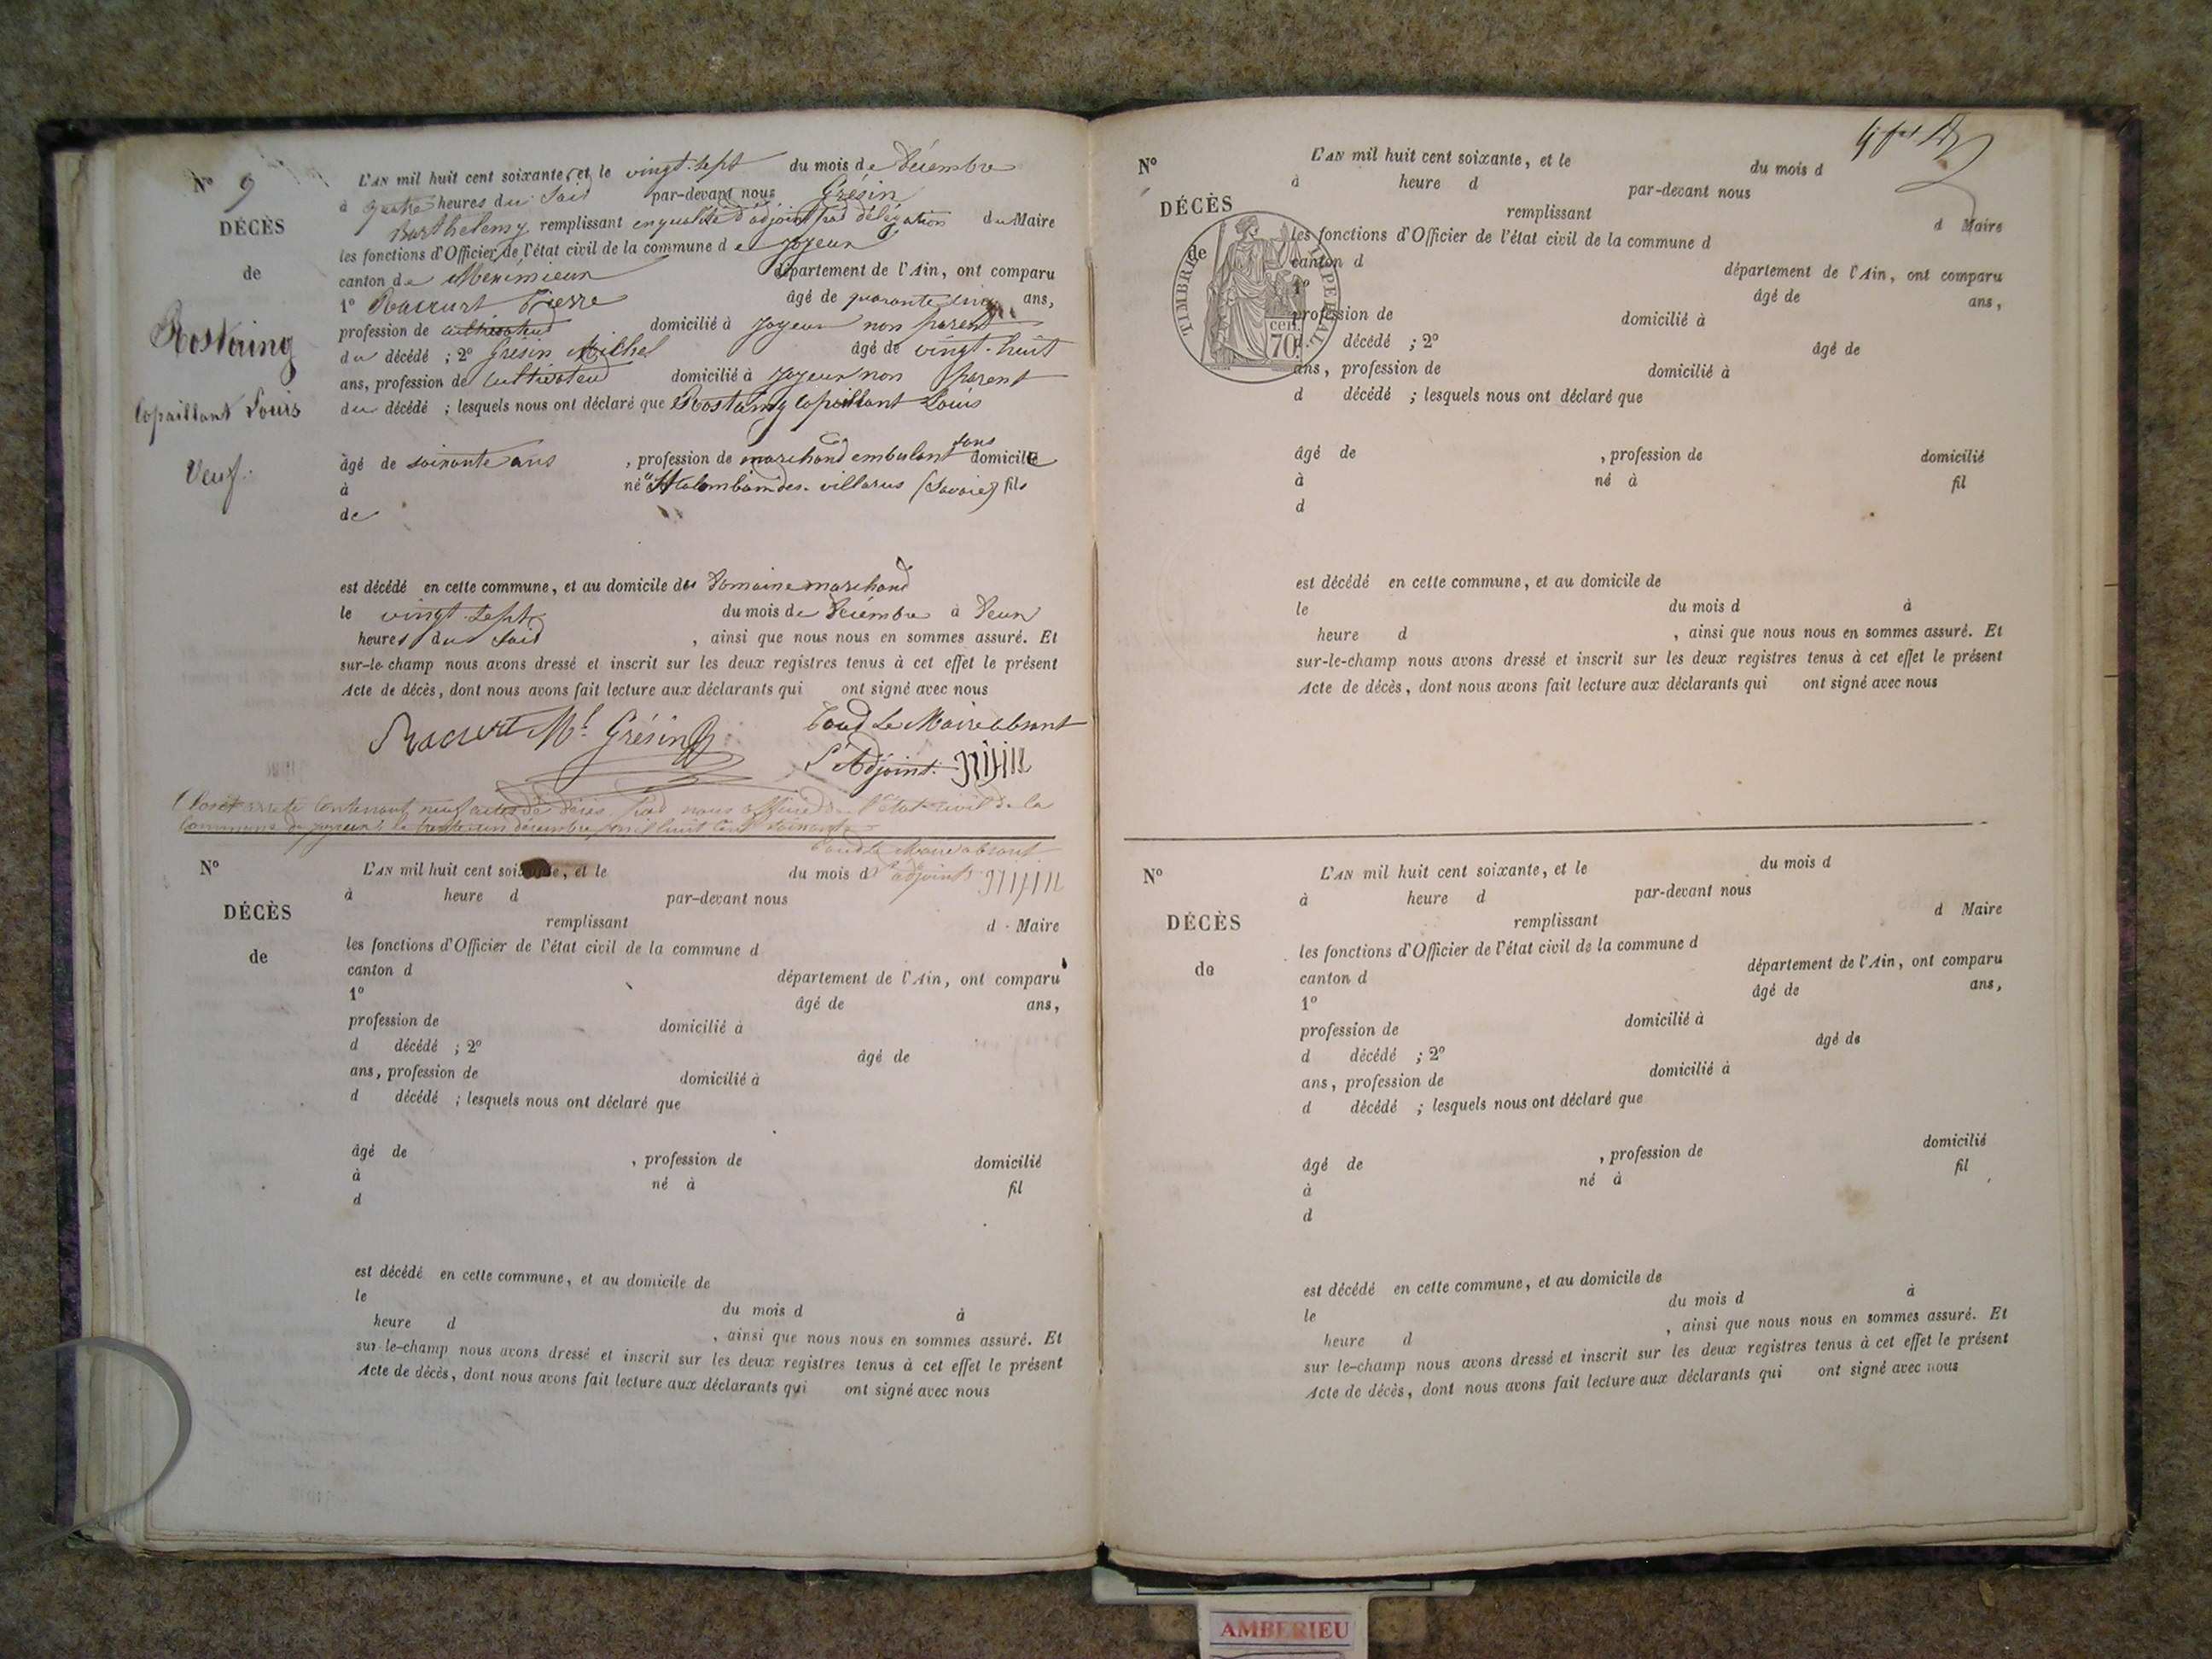 N° 9
DÉCÈS
de
Rostaing
Copaillant Louis
Veuf.
L'AN mil huit cent soixante, et le vingt-sept du mois de Décembre
à quatre heures du Soir par-devant nous Grésin
Barthelemy remplissant en qualité d'adjoint par délégation du Maire
les fonctions d'Officier de l'état civil de la commune de Joyeux
canton de Meximieux département de l'Ain, ont comparu
1° Racurt Pierre âgé de quarante cinq ans,
profession de cultivateur domicilié à Joyeux non parent
du décédé ; 2° Grésin Michel âgé de vingt-huit
ans, profession de cultivateur domicilié à Joyeux non parent
du décédé ; lesquels nous ont déclaré que Rostaing Copaillant Louis
âgé de soixante ans , profession de marchand embulant sans domicile
à né à St Colomban des villarus (Savoie) fils
de
est décédé en cette commune, et au domicile des Domaine marchand
le vingt-sept du mois de Décembre à Deux
heures du Soir , ainsi que nous nous en sommes assuré. Et
sur-le-champ nous avons dressé et inscrit sur les deux registres tenus à cet effet le présent
Acte de décès, dont nous avons fait lecture aux déclarants qui ont signé avec nous
Racurt Ml Grésin Pour Le Maire absent
L'Adjoint. Grésin
Clos et arrêté contenant neuf actes de décès par nous officier de l'état-civil de la
commune de Joyeux le trente-un décembre mil huit cent soixante
Pour le Maire absent
l'adjoint Grésin
N°
DÉCÈS
de
L'AN mil huit cent soixante, et le du mois d
à heure d par-devant nous
remplissant d Maire
les fonctions d'Officier de l'état civil de la commune d
canton d département de l'Ain, ont comparu
1° âgé de ans,
profession de domicilié à
d décédé ; 2° âgé de
ans, profession de domicilié à
d décédé ; lesquels nous ont déclaré que
âgé de , profession de domicilié
à né à fil
d
est décédé en cette commune, et au domicile de
le du mois d à
heure d , ainsi que nous nous en sommes assuré. Et
sur-le-champ nous avons dressé et inscrit sur les deux registres tenus à cet effet le présent
Acte de décès, dont nous avons fait lecture aux déclarants qui ont signé avec nous
N°
DÉCÈS
de
TIMBRE IMPERIAL
70 cen.
L'AN mil huit cent soixante, et le du mois d
à heure d par-devant nous
remplissant d Maire
les fonctions d'Officier de l'état civil de la commune d
canton d département de l'Ain, ont comparu
1° âgé de ans,
profession de domicilié à
d décédé ; 2° âgé de
ans, profession de domicilié à
d décédé ; lesquels nous ont déclaré que
âgé de , profession de domicilié
à né à fil
d
est décédé en cette commune, et au domicile de
le du mois d à
heure d , ainsi que nous nous en sommes assuré. Et
sur-le-champ nous avons dressé et inscrit sur les deux registres tenus à cet effet le présent
Acte de décès, dont nous avons fait lecture aux déclarants qui ont signé avec nous
N°
DÉCÈS
de
L'AN mil huit cent soixante, et le du mois d
à heure d par-devant nous
remplissant d Maire
les fonctions d'Officier de l'état civil de la commune d
canton d département de l'Ain, ont comparu
1° âgé de ans,
profession de domicilié à
d décédé ; 2° âgé de
ans, profession de domicilié à
d décédé ; lesquels nous ont déclaré que
âgé de , profession de domicilié
à né à fil
d
est décédé en cette commune, et au domicile de
le du mois d à
heure d , ainsi que nous nous en sommes assuré. Et
sur le-champ nous avons dressé et inscrit sur les deux registres tenus à cet effet le présent
Acte de décès, dont nous avons fait lecture aux déclarants qui ont signé avec nous
AMBERIEU